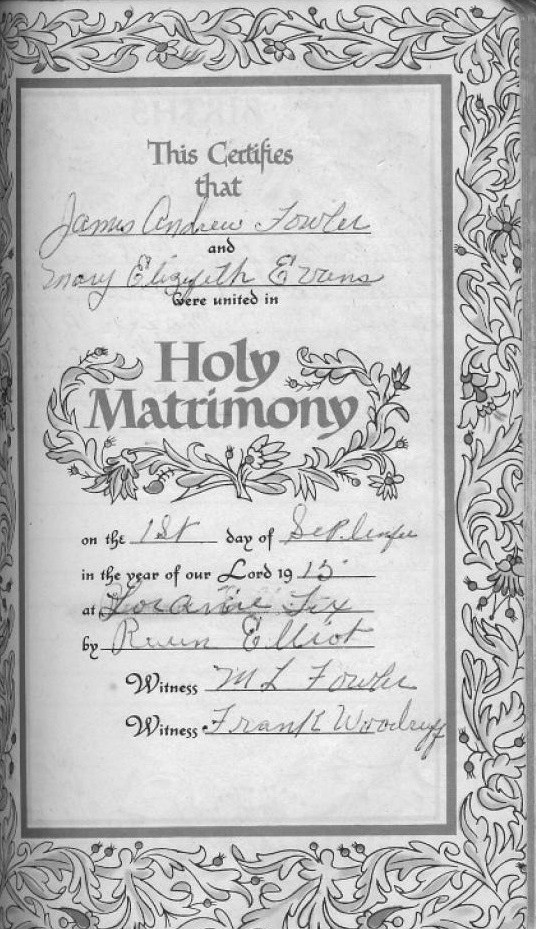 This Certifies
that
James Andrew Fowler
and
Mary Elizabeth Evans
were united in
Holy
Matrimony
on the 1st day of September
in the year of our Lord 19 15
at Loraine Tex
by Elliot
Witness M L Fowler
Witness Frank Woodruff